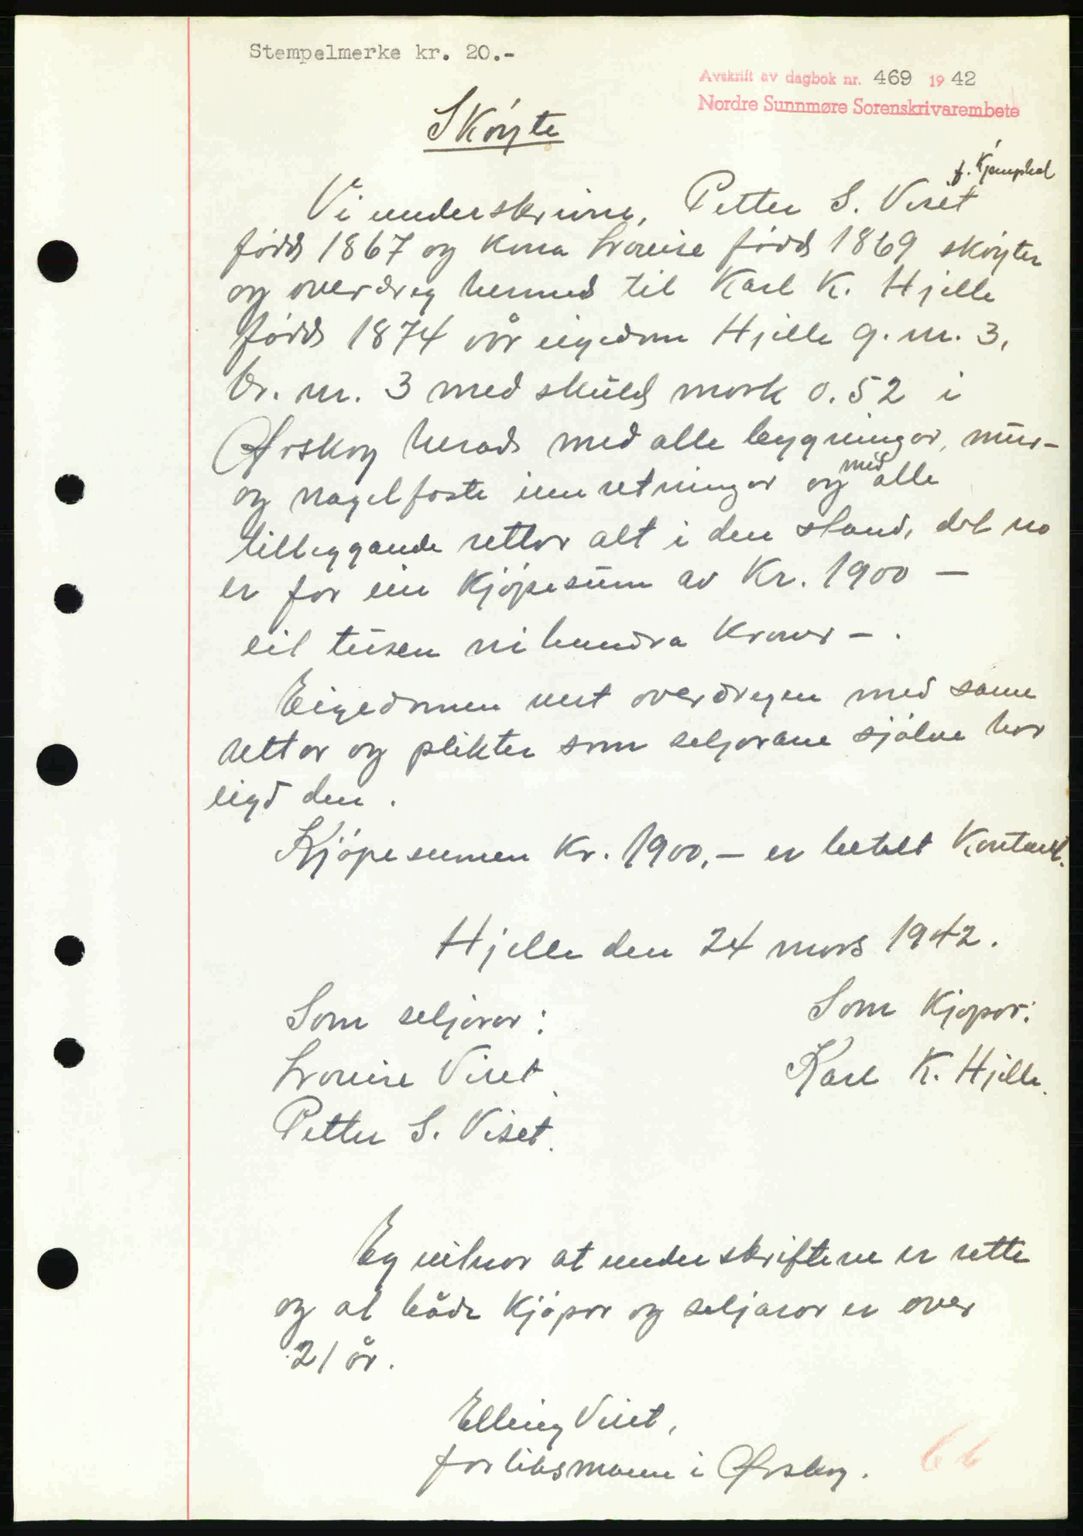 Stempelmerke kr. 20.-
Avskrift av dagbok nr. 469 1942
Nordre Sunnmøre Sorenskrivarembete
Skóyte
f. Kjemphol
Vi underskrivne, Petter S. Viset
född 1867 og kona Lovise född 1869 skóyter
og overdreg hermed til Karl K. Hjelle
född 1874 vår eigedom Hjelle g. nr. 3,
br. nr. 3 med skuld mork 0.52 i
Ørskog herad med alle bygningar, mur-
og nagelfaste innretningar og med alle
tilleggande rettar alt i den stand, det no
er for ein kjópesum av Kr. 1900 —
eit tusen nihundra Kroner - .
Eigedomen vert overdregen med same
rettar og plikter som seljarane sjólve har
eigd den .
Kjópesumen Kr. 1900,— er betalt Kontant.
Hjelle den 24 mars 1942.
Som seljarar:
Som Kjópar:
Lovise Viset
Karl K. Hjelle.
Petter S. Viset.
Eg vitnar at underskriftene er rette
og at både Kjópar og seljarar er over
21 år.
Elling Viset,
forliksmann i Ørskog.
66